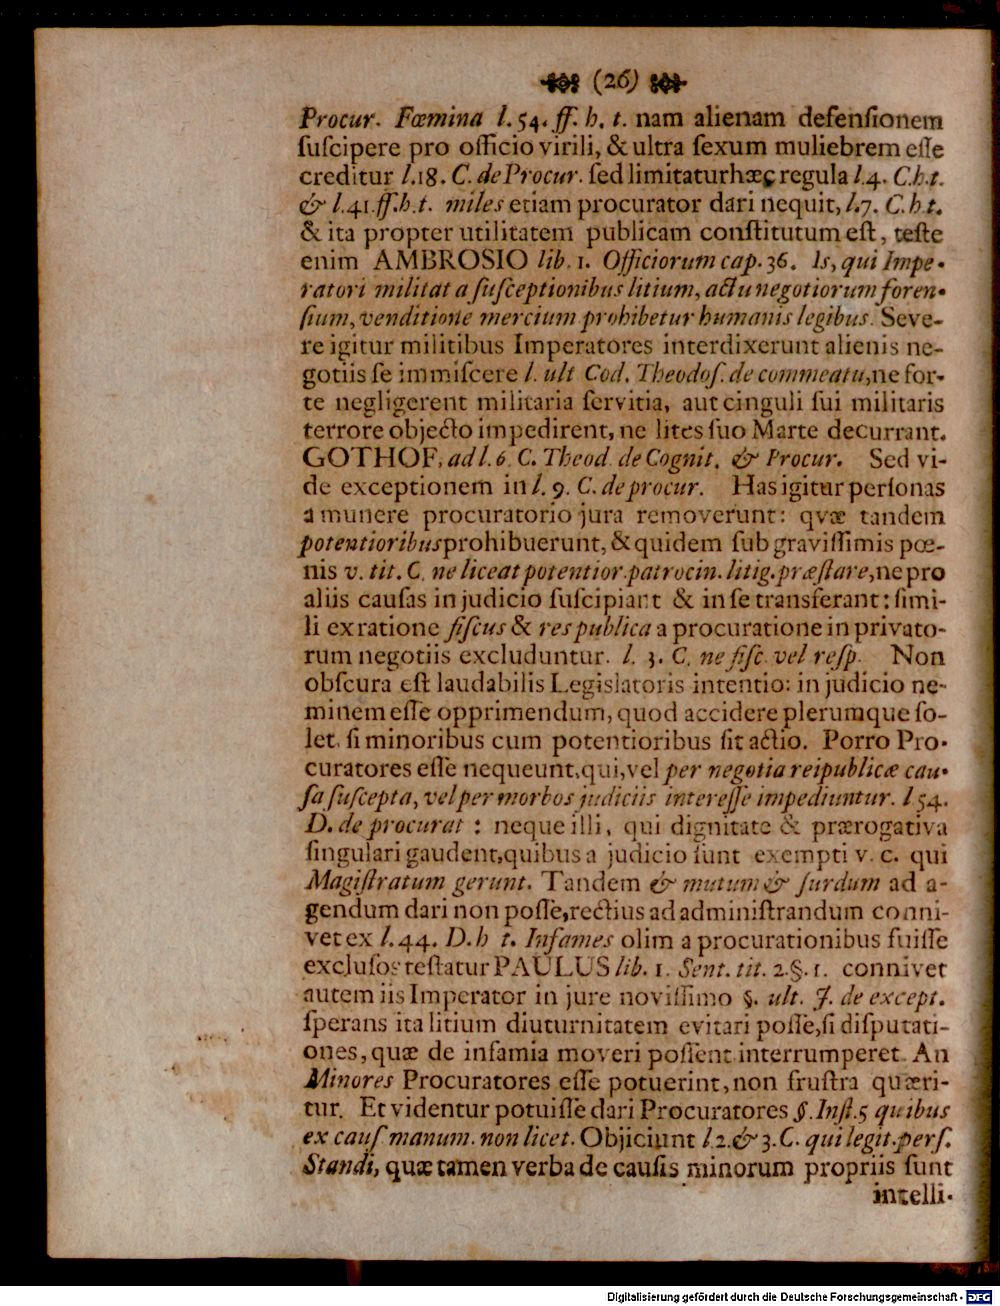 (26)
Procur. Fœmina l. 54. ff. h. t. nam alienam defenſionem
ſuſcipere pro officio virili, & ultra ſexum muliebrem eſſe
creditur l.18. C. de Procur. ſed limitatur hæc regula l.4. C.h.t.
& l.41.ff.h.t. miles etiam procurator dari nequit, l.7. C.h.t.
& ita propter utilitatem publicam conſtitutum eſt, teſte
enim AMBROSIO lib. 1. Officiorum cap. 36. Is, qui Impe-
ratori militat a ſuſceptionibus litium, actu negotiorum foren-
ſium, venditione mercium prohibetur humanis legibus. Seve-
re igitur militibus Imperatores interdixerunt alienis ne-
gotiis ſe immiſcere l. ult Cod. Theodoſ. de commeatu, ne for-
te negligerent militaria ſervitia, aut cinguli ſui militaris
terrore objecto impedirent, ne lites ſuo Marte decurrant.
GOTHOF, ad l. 6. C. Theod. de Cognit. & Procur. Sed vi-
de exceptionem in l. 9. C. de procur. Has igitur perſonas
a munere procuratorio jura removerunt: qvæ tandem
potentioribus prohibuerunt, & quidem ſub graviſſimis pœ-
nis v. tit. C. ne liceat potentior. patrocin. litig. præſtare, ne pro
aliis cauſas in judicio ſuſcipiant & in ſe transferant: ſimi-
li ex ratione fiſcus & respublica a procuratione in privato-
rum negotiis excluduntur. l. 3. C. ne fiſc. vel reſp. Non
obſcura eſt laudabilis Legislatoris intentio: in judicio ne-
minem eſſe opprimendum, quod accidere plerumque ſo-
let, ſi minoribus cum potentioribus ſit actio. Porro Pro-
curatores eſſe nequeunt, qui, vel per negotia reipublicæ cau-
ſa ſuſcepta, vel per morbos judiciis intereſſe impediuntur. l 54.
D. de procurat : neque illi, qui dignitate & prærogativa
ſingulari gaudent, quibus a judicio ſunt exempti v. c. qui
Magiſtratum gerunt. Tandem & mutum & ſurdum ad a-
gendum dari non poſſe, rectius ad adminiſtrandum conni-
vet ex l. 44. D. h t. Infames olim a procurationibus fuiſſe
excluſos teſtatur PAULUS lib. 1. Sent. tit. 2. §. 1. connivet
autem iis Imperator in jure noviſſimo §. ult. J. de except.
ſperans ita litium diuturnitatem evitari poſſe, ſi diſputati-
ones, quæ de infamia moveri poſſent interrumperet. An
Minores Procuratores eſſe potuerint, non fruſtra quæri-
tur. Et videntur potuiſſe dari Procuratores §. Inſt. 5 quibus
ex cauſ manum. non licet. Objiciunt l 2. & 3. C. qui legit. perſ.
Standi, quæ tamen verba de cauſis minorum propriis ſunt
intelli-
Digitalisierung gefördert durch die Deutsche Forschungsgemeinschaft - DFG